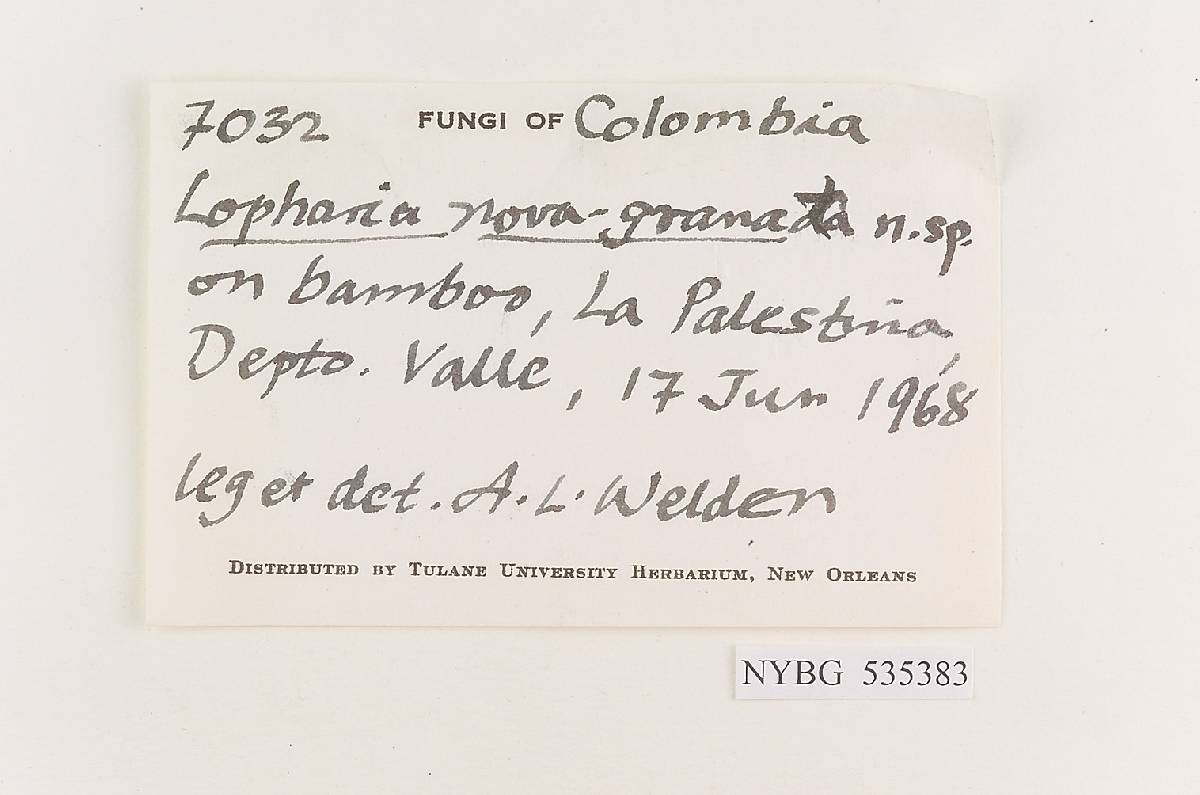 7032 FUNGI OF Colombia
Lopharia nova-granata n.sp.
on bamboo, La Palestina,
Depto. Valle, 17 Jun 1968
leg et det. A. L. Welden
DISTRIBUTED BY TULANE UNIVERSITY HERBARIUM, NEW ORLEANS
NYBG 535383